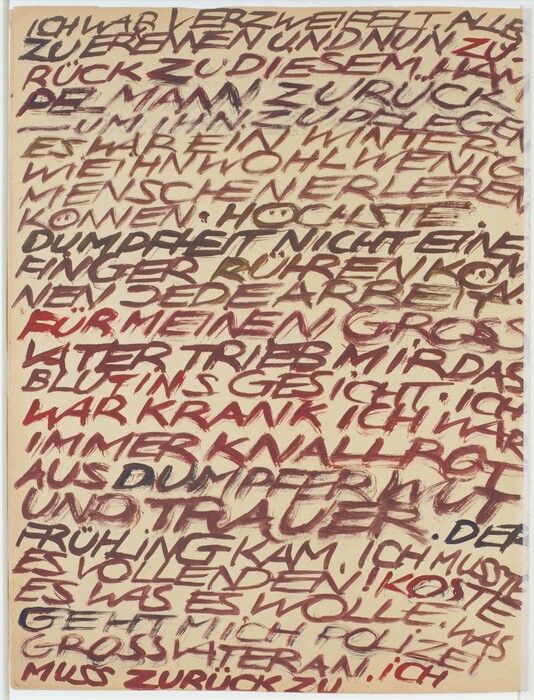 ICH WAR VERZWEIFELT. ALLES
ZU EREMEN UND NUN ZU
RÜCK ZU DIESEM HAM
PELMANN ZURÜCK
– UM IHN ZU PFLEGEN
ES WAR EIN WINTER
WIE IHN WOHL WENIG
MENSCHEN ERLEBEN
KÖNNEN. HÖCHSTE
DUMPFHEIT NICHT EINEN
FINGER RÜHREN KÖN
NEN JEDE ARBEIT.
FÜR MEINEN GROSS
VATER TRIEB MIR DAS
BLUT INS GESICHT. ICH
WAR KRANK ICH WAR
IMMER KNALLROT
AUS DUMPFER WUT
UND TRAUER. DER
FRÜHLING KAM. ICH MUSSTE
ES VOLLENDEN! KOSTE
ES WAS ES WOLLE. WAS
GEHT MICH POLIZEI
GROSSVATER AN. ICH
MUSS ZURÜCK ZU